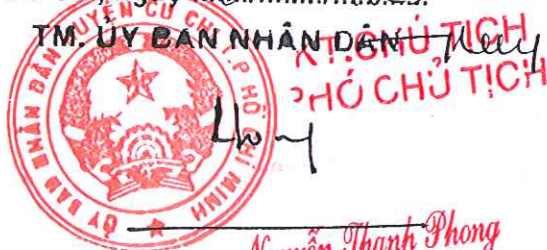 TM. ỦY BAN NHÂN DÂN
KT. CHỦ TỊCH
PHÓ CHỦ TỊCH
ỦY BAN NHÂN DÂN HUYỆN CỦ CHI T.P HỒ CHÍ MINH
Nguyễn Thanh Phong